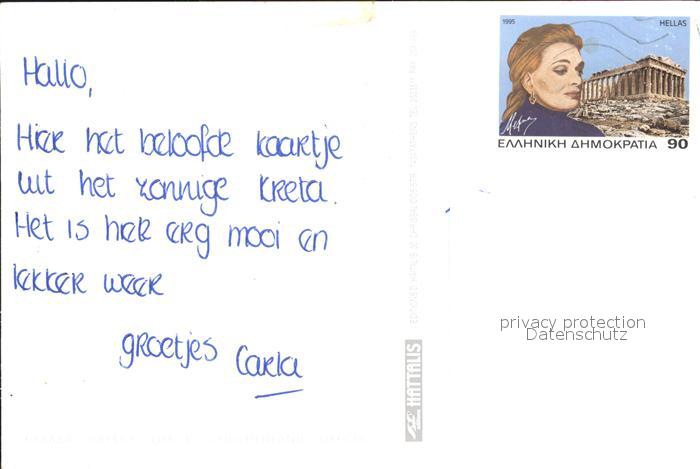 Hallo,
Hier het beloofde kaartje
uit het zonnige Kreta.
Het is hier erg mooi en
lekker weer
groetjes Carla
1995 HELLAS
ΕΛΛΗΝΙΚΗ ΔΗΜΟΚΡΑΤΙΑ 90
HAITALIS
privacy protection
Datenschutz